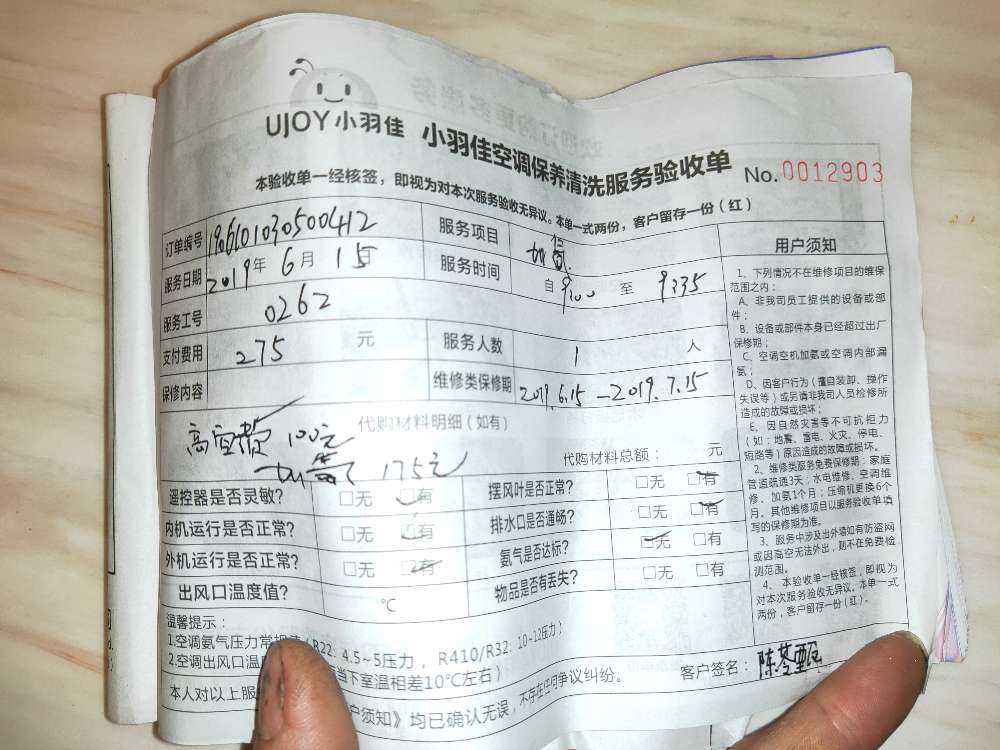 UJOY小羽佳
小羽佳空调保养清洗服务验收单
No.0012903
本验收单一经核签，即视为对本次服务验收无异议。本单一式两份，客户留存一份（红）
订单编号 190610103050041412 服务项目 加氨
服务日期 2019年6月15日 服务时间 自 9:00 至 9:35
服务工号 0262
支付费用 275 元 服务人数 1 人
保修内容 维修类保修期 2019.6.15-2019.7.15
代购材料明细（如有）
高空费 100元
175元
代购材料总额： 元
遥控器是否灵敏？ □无 □有 摆风叶是否正常？ □无 □有
内机运行是否正常？ □无 □有 排水口是否通畅？ □无 □有
外机运行是否正常？ □无 □有 氨气是否达标？ □无 □有
出风口温度值？ ℃ 物品是否有丢失？ □无 □有
温馨提示：
1.空调氨气压力常 R22: 4.5~5压力，R410/R32: 10~12压力；
2.空调出风口温 当下室温相差10℃左右）
本人对以上服 户须知》均已确认无误，不存在任何争议纠纷。
客户签名：陈
用户须知
1、下列情况不在维修项目的维保
范围之内：
A、非我司员工提供的设备或部
件；
B、设备或部件本身已经超过出厂
保修期；
C、空调空机加氨或空调内部漏
氨；
D、因客户行为（擅自装卸、操作
失误等）或另请非我司人员检修所
造成的故障或损坏；
E、因自然灾害等不可抗拒力
（如：地震、雷电、火灾、停电、
短路等）原因造成的故障或损坏。
2、维修类服务免费保修期：家庭
管道疏通3天；水电维修、空调维
修、加氨1个月；压缩机更换6个
月。其他维修项目以服务验收单填
写的保修期为准。
3、服务中涉及出外墙如有防盗网
或因高空无法外出，则不在免费检
测范围。
4、本验收单一经核签，即视为
对本次服务验收无异议。本单一式
两份，客户留存一份（红）。